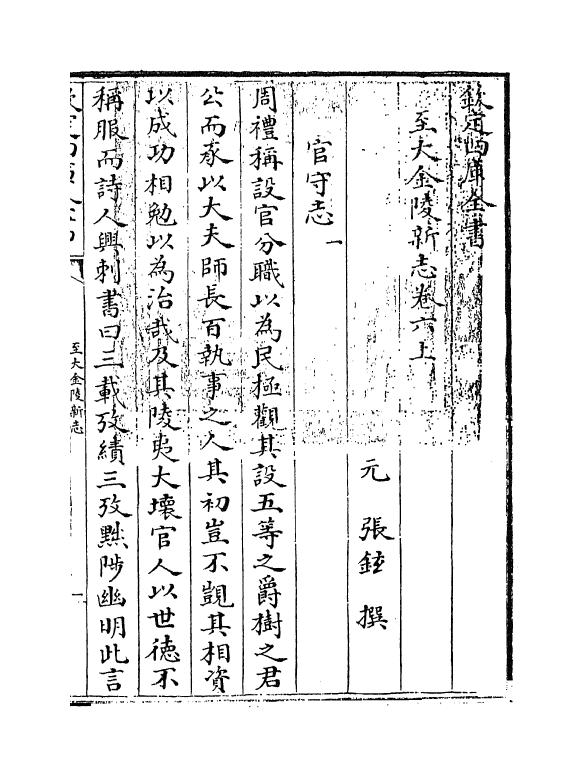 欽定四庫全書
至大金陵新志卷六上
元 張鉉 撰
官守志一
周禮稱設官分職以為民極觀其設五等之爵樹之君
公而承以大夫師長百執事之人其初豈不覬其相資
以成功相勉以為治哉及其陵夷大壞官人以世徳不
稱服而詩人興刺書曰三載攷績三攷黜陟幽明此言
至大金陵新志
一